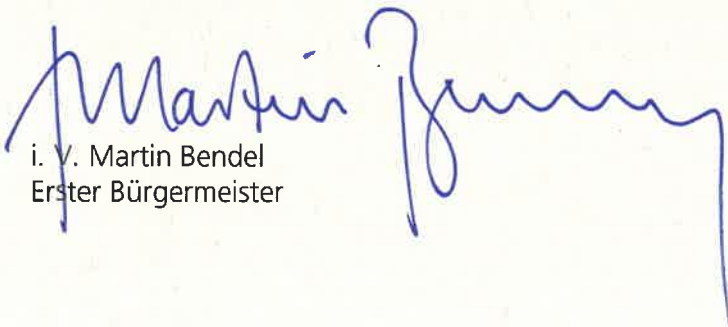 Martin
i. V. Martin Bendel
Erster Bürgermeister